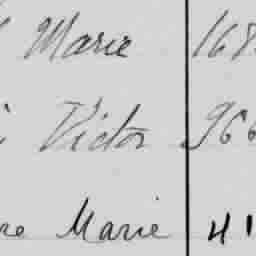 Marie 168
Victor 966
re Marie 41